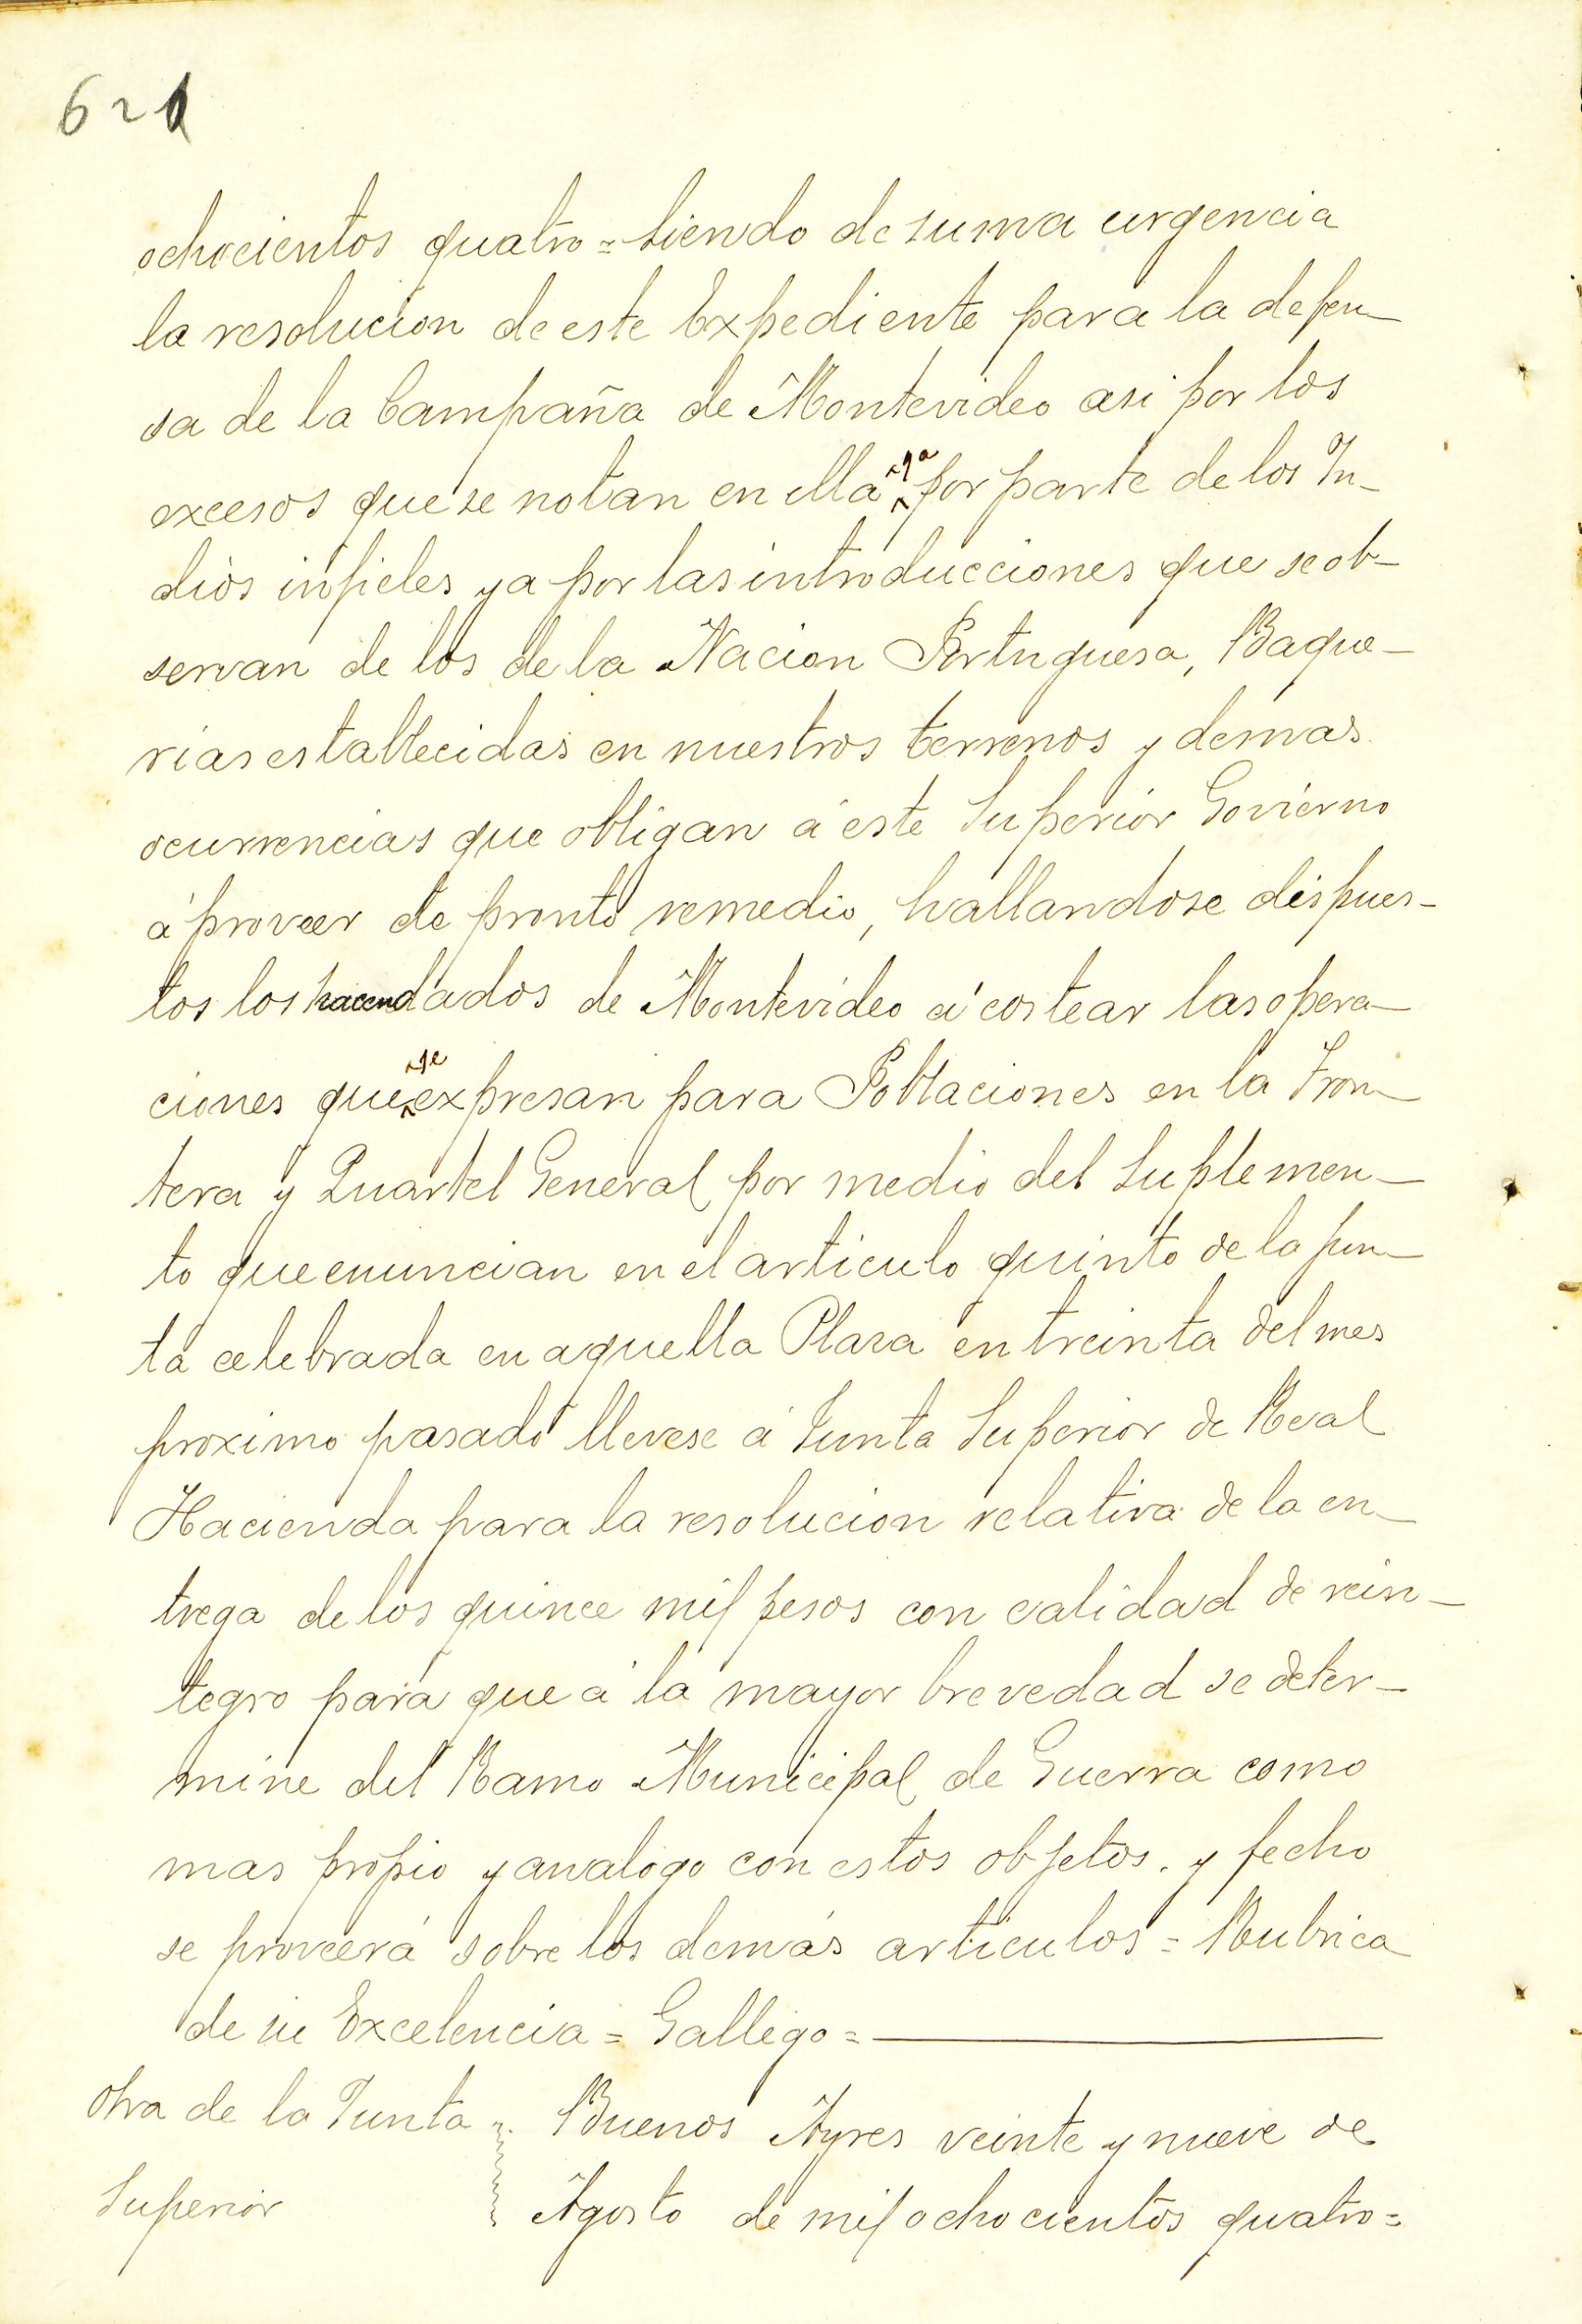 621
ochocientos quatro = Siendo de suma urgencia
la resolucion de este Expediente para la defen-
sa de la Campaña de Montevideo asi por los
excesos que se notan en ella ya por parte de los In-
dios infieles ya por las introducciones que se ob-
servan de los de la Nacion Portuguesa, Baque-
rias establecidas en nuestros terrenos y demas
ocurrencias que obligan á este Superior Govierno
á proveer de pronto remedio, hallandose dispues-
tos los hacendados de Montevideo á costear las opera-
ciones que se expresan para Poblaciones en la Fron-
tera y Quartel General por medio del Suplemen-
to que enuncian en el articulo quinto de la jun-
ta celebrada en aquella Plaza en treinta del mes
proximo pasado llevese á Junta Superior de Real
Hacienda para la resolucion relativa de la en-
trega de los quince mil pesos con calidad de rein-
tegro para que á la mayor brevedad se deter-
mine del Ramo Municipal de Guerra como
mas propio y analogo con estos objetos. y fecho
se proveerá sobre los demás articulos = Rubrica
de su Excelencia = Gallego =
Otra de la Junta
Superior
Buenos Ayres veinte y nueve de
Agosto de mil ochocientos quatro =